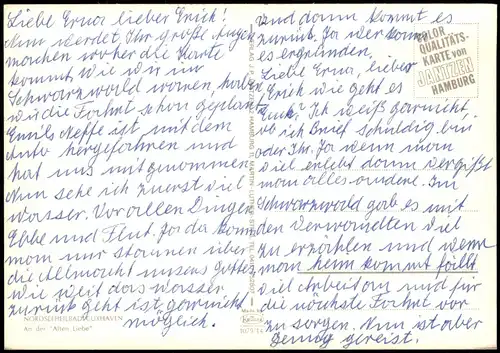 Liebe Erna lieber Erich!
Nun werdet Ihr große Augen
machen woher die Karte
kommt. Wie wir im
Schwarzwald waren, haben
wir die Fahrt schon geplant
Emils Neffe ist mit dem
Auto hergefahren und
hat uns mitgenommen.
Nun sehe ich zuerst viel
Wasser. Vor allen Dingen
Ebbe und Flut. Ja da kann
man nur staunen über
die Allmacht unsens Gottes
wie weit das Wasser
zurück geht ist garnicht
möglich.
NORDSEEHEILBAD CUXHAVEN
An der "Alten Liebe"
Und dann kommt es
zurück. Ja wer kann
es ergründen,
Liebe Erna, lieber
Erich wie geht es
Euch? Ich weiß garnicht,
ob ich Brief schuldig bin
oder Ihr. Ja wenn man
viel erlebt dann vergißt
man alles andere. Im
Schwarzwald gab es mit
den Verwandten viel
zu erzählen und wenn
man heim kommt fällt
viel Arbeit an und für
die nächste Fahrt vor
zu sorgen. Nun ist aber
genug gereist.
COLOR
QUALITÄTS-
KARTE von
JANTZEN
HAMBURG